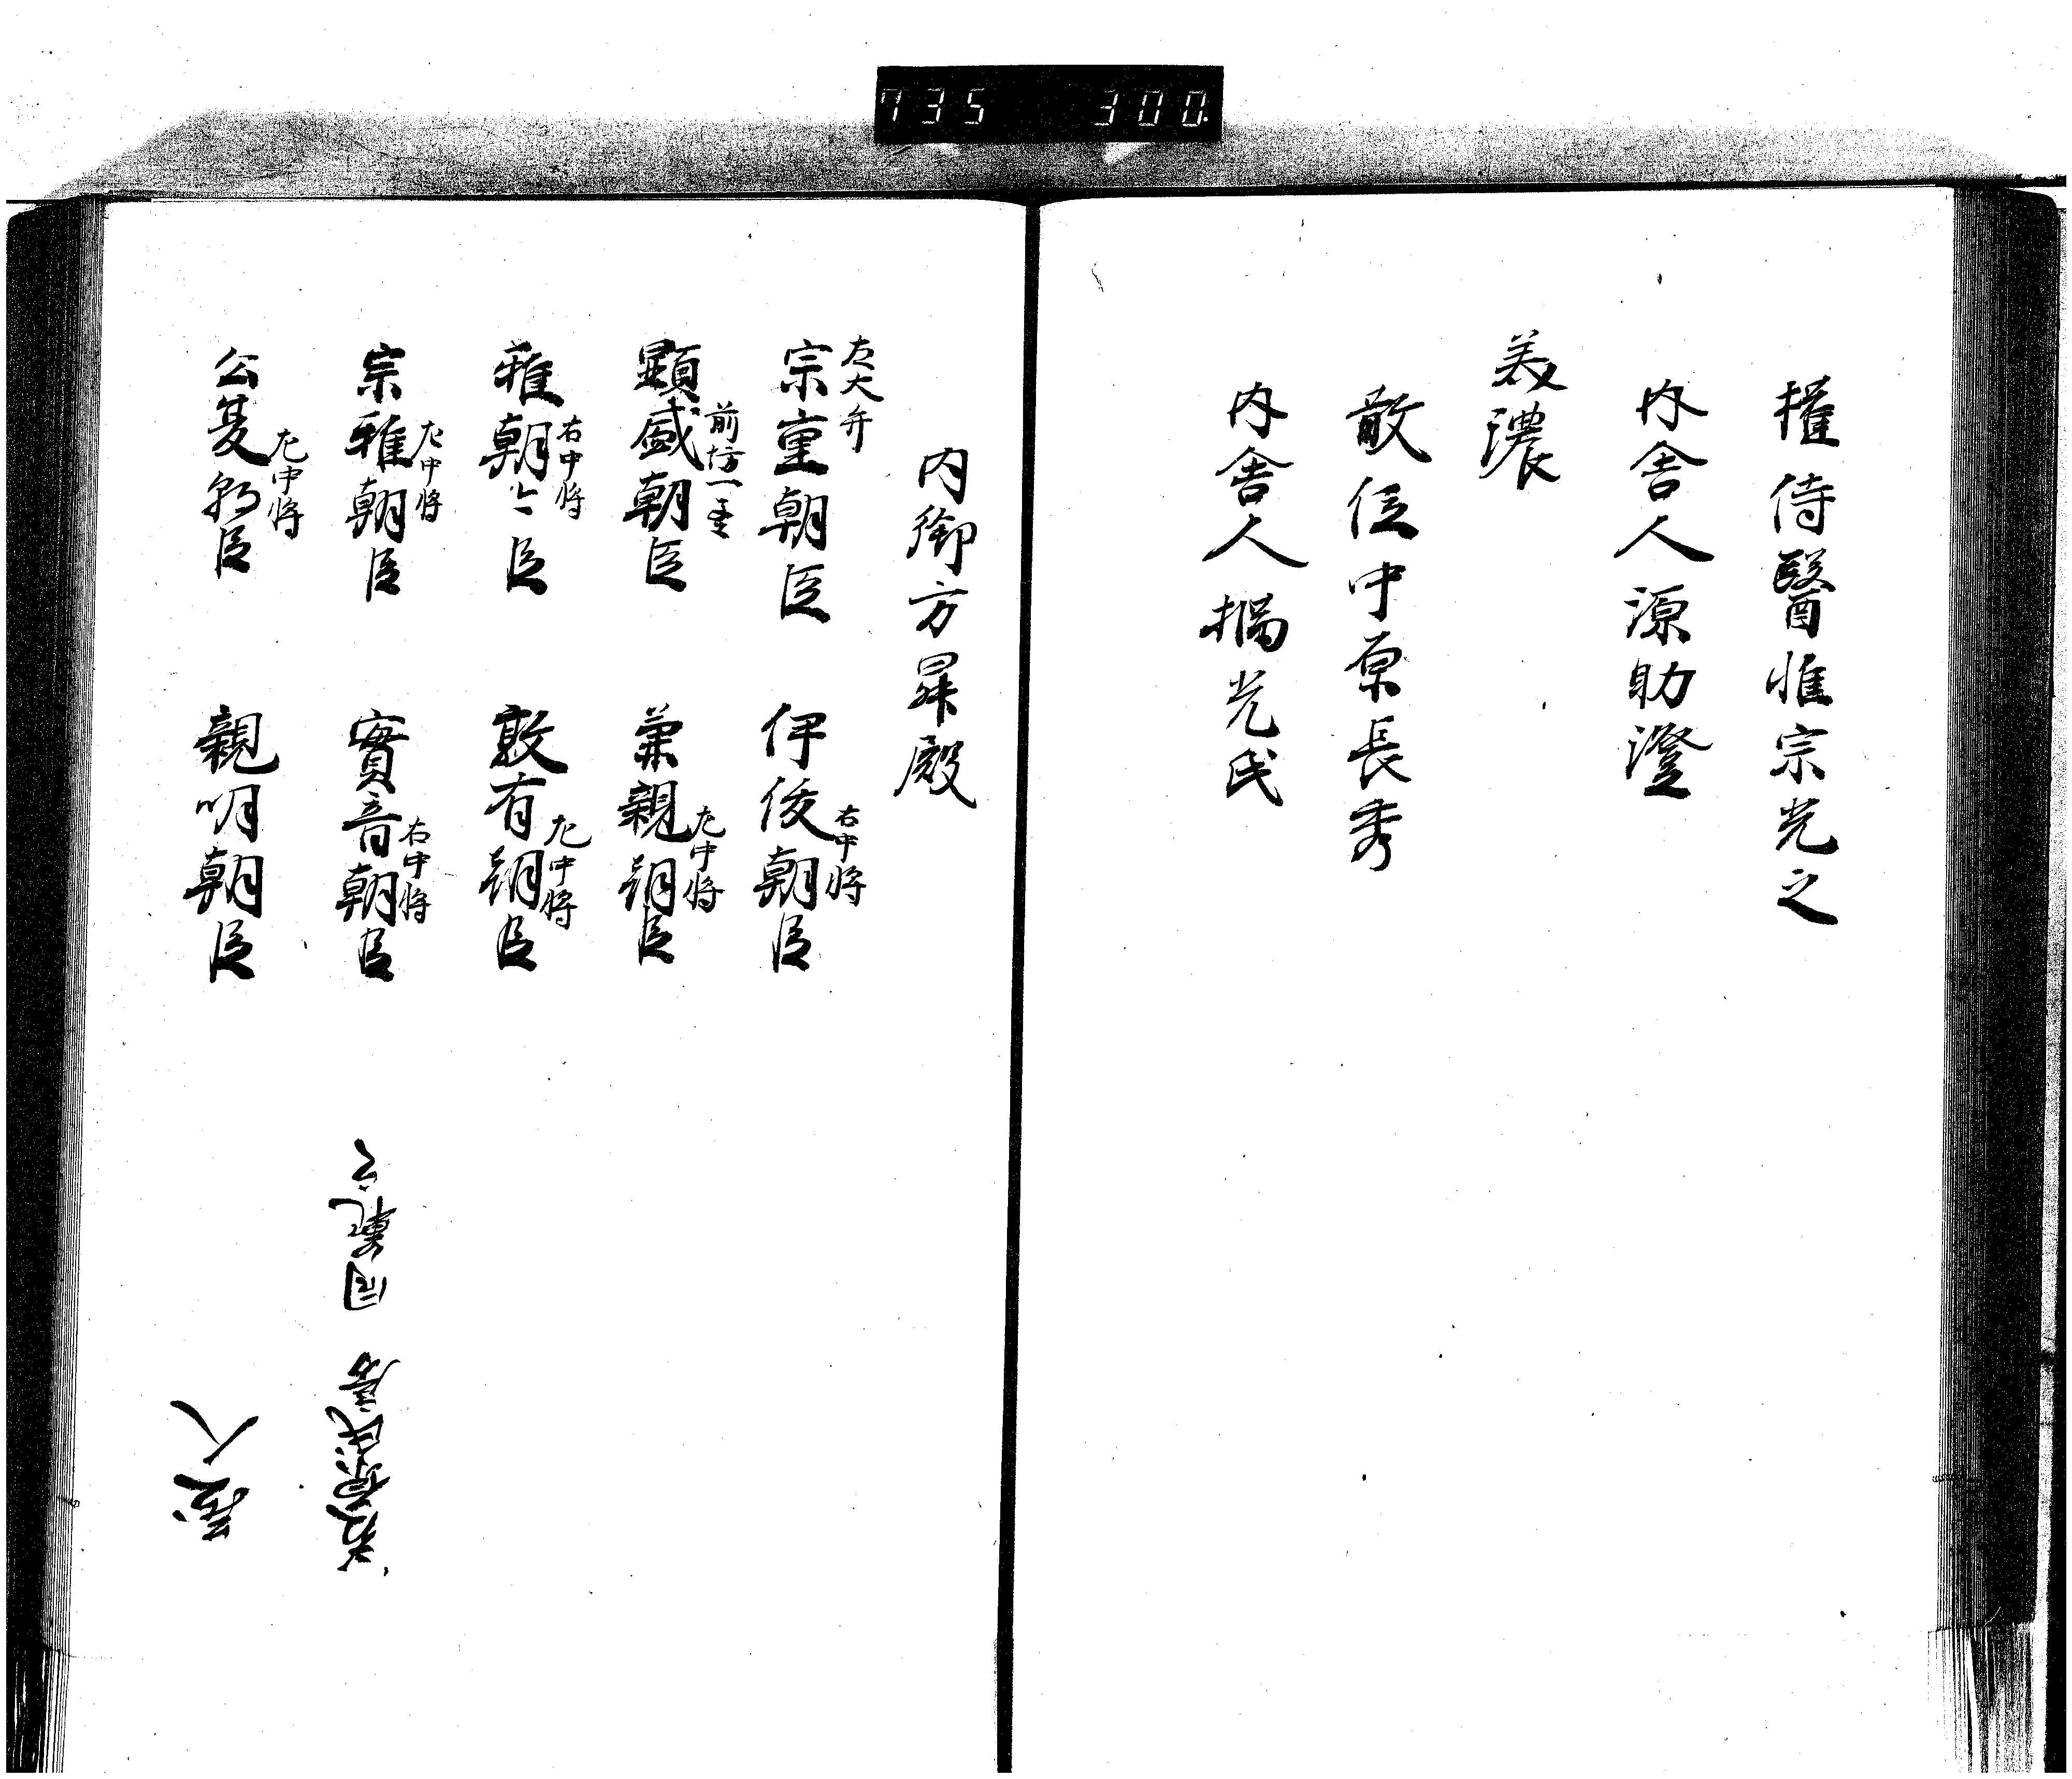 735 300.
権侍醫惟宗光之
内舎人源助澄
美濃
散位中原長秀
内舎人橘光氏
内御方昇殿
左大弁
宗重朝臣
右中将
伊俊朝臣
前坊一
顕盛朝臣
左中将
兼親朝臣
右中将
雅朝〻臣
左中将
敦有朝臣
左中将
宗雅朝臣
右中将
實音朝臣
左中将
公夏朝臣
親明朝臣
蔵人
藤原氏
同範